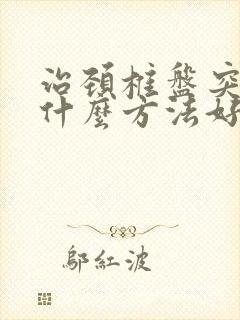 治頚椎盤突
什麼方法好
鄔紅波